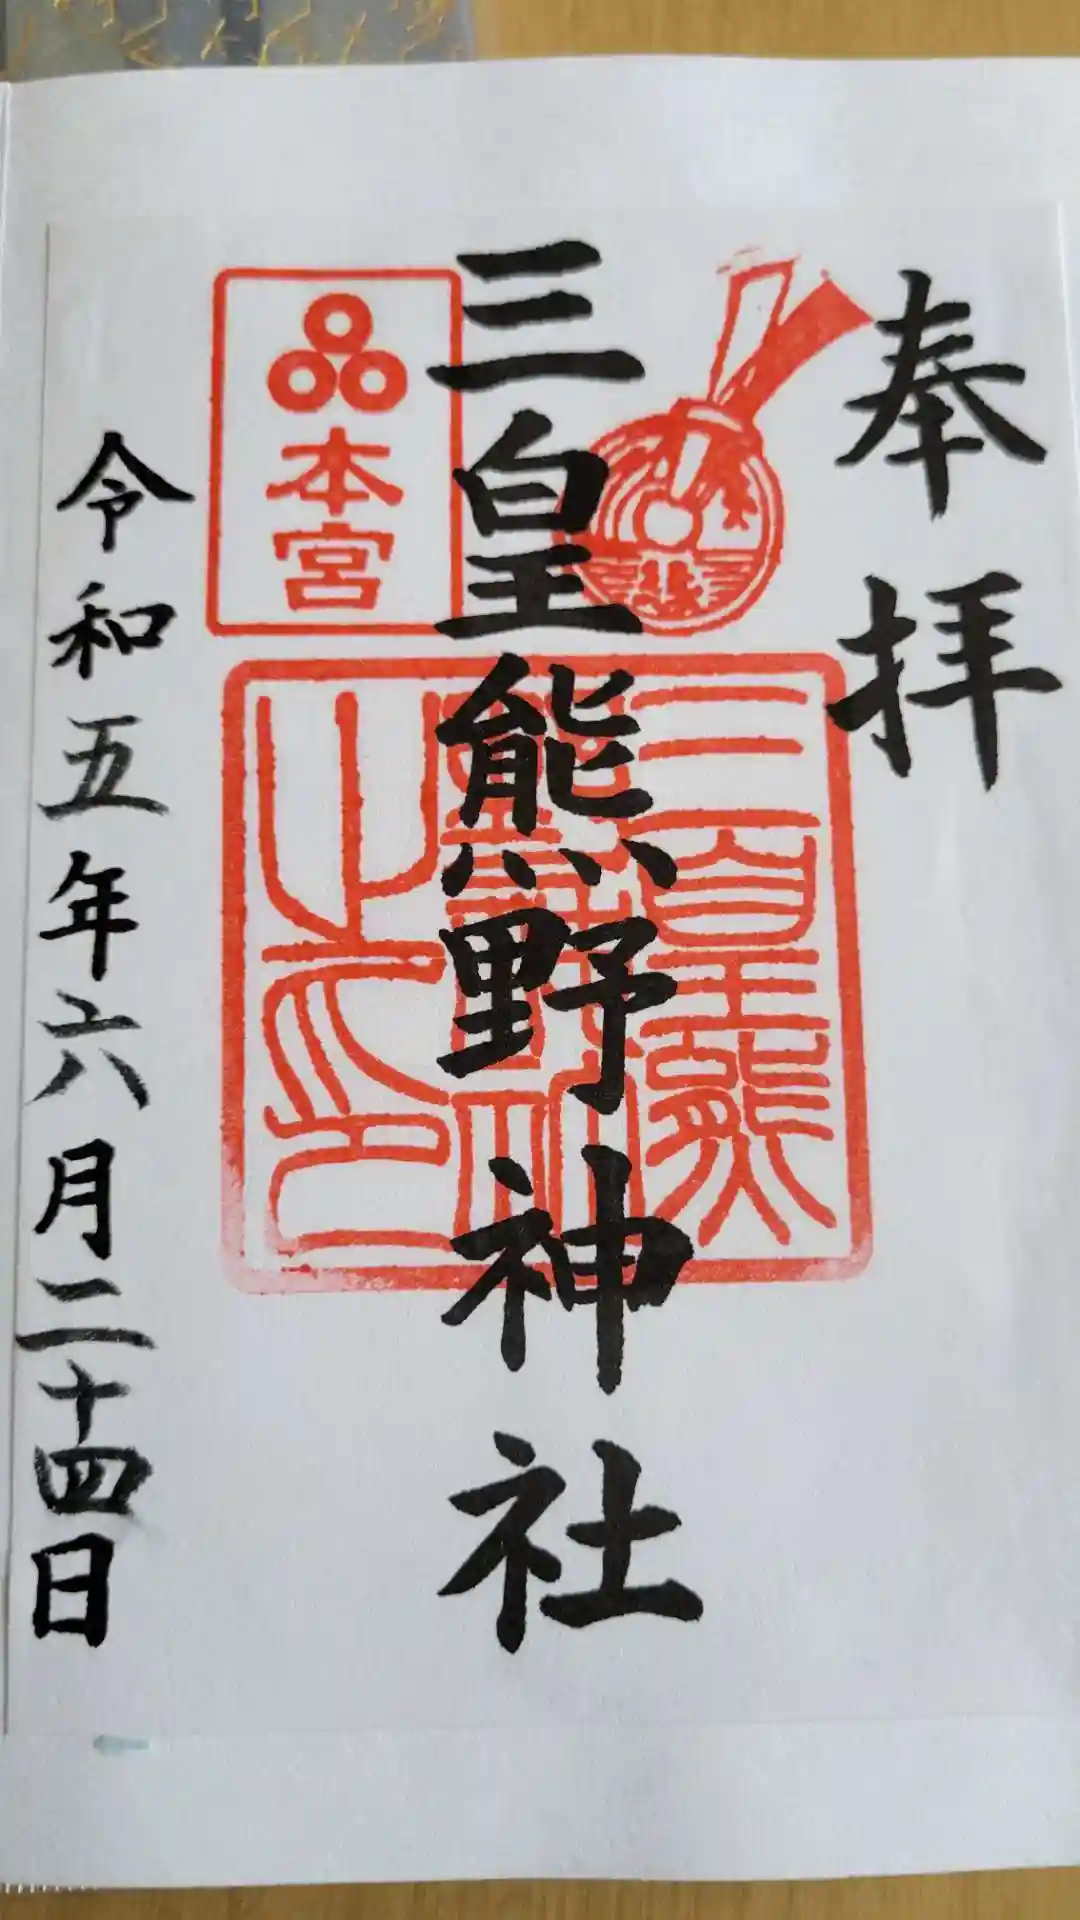 奉拝
三皇熊野神社
本宮
三皇熊
野神社
之印
令和五年六月二十四日